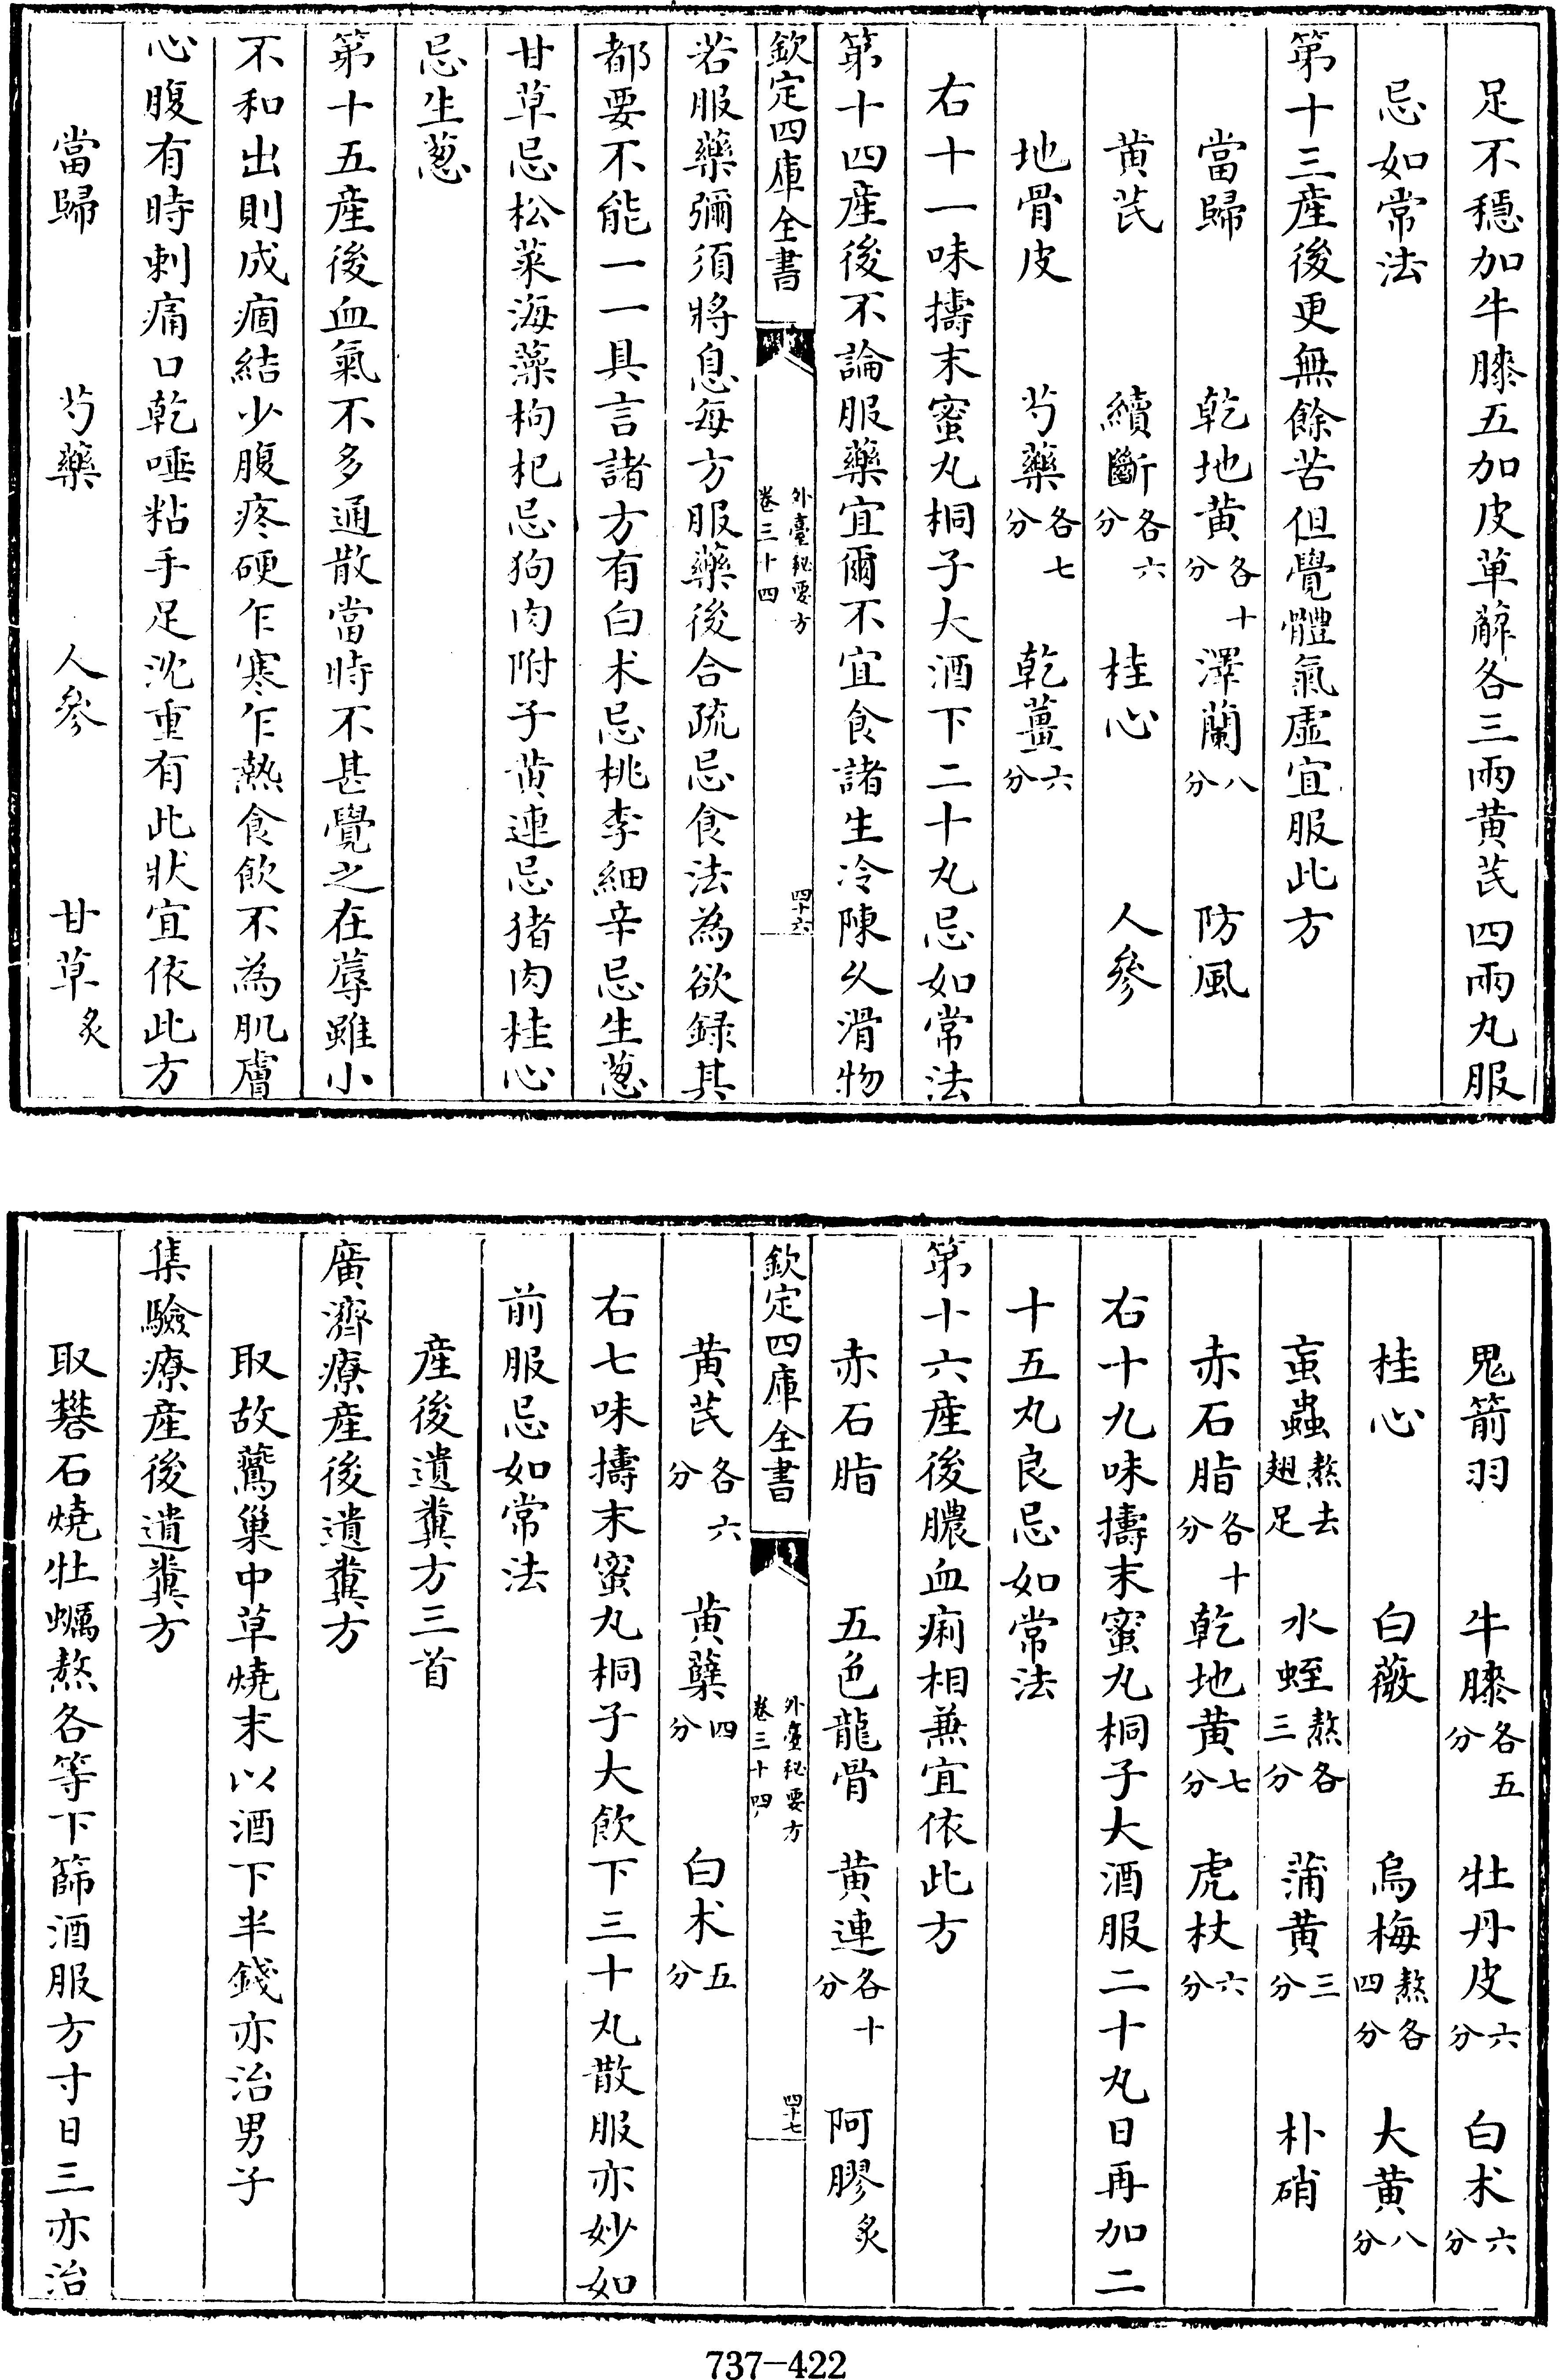 足不穩加牛膝五加皮萆薢各三兩黄芪四兩丸服
忌如常法
第十三産後更無餘苦但覺體氣虛宜服此方
當歸 乾地黄各十分 澤蘭八分 防風
黄芪 續斷各六分 桂心 人參
地骨皮 芍藥各七分 乾薑六分
右十一味擣末蜜丸桐子大酒下二十丸忌如常法
第十四産後不論服藥宜爾不宜食諸生冷陳久滑物
欽定四庫全書 外臺秘要方卷三十四 四十六
若服藥彌須將息每方服藥後合疏忌食法為欲録其
都要不能一一具言諸方有白术忌桃李細辛忌生葱
甘草忌松菜海藻枸杞忌狗肉附子黄連忌猪肉桂心
忌生葱
第十五産後血氣不多通散當時不甚覺之在蓐雖小
不和出則成痼結少腹疼硬乍寒乍熱食飲不為肌膚
心腹有時刺痛口乾唾粘手足沈重有此狀宜依此方
當歸 芍藥 人參 甘草炙
鬼箭羽 牛膝各五分 牡丹皮六分 白术六分
桂心 白薇 烏梅熬各四分 大黄八分
䖟蟲熬去翅足 水蛭熬各三分 蒲黄三分 朴硝
赤石脂各十分 乾地黄七分 虎杖六分
右十九味擣末蜜丸桐子大酒服二十丸日再加二
十五丸良忌如常法
第十六産後膿血痢相兼宜依此方
赤石脂 五色龍骨 黄連各十分 阿膠炙
欽定四庫全書 外臺秘要方卷三十四 四十七
黄芪各六分 黄蘗四分 白术五分
右七味擣末蜜丸桐子大飲下三十丸散服亦妙如
前服忌如常法
産後遺糞方三首
廣濟療産後遺糞方
取故鷰巢中草燒末以酒下半錢亦治男子
集驗療産後遺糞方
取礬石燒牡蠣熬各等下篩酒服方寸日三亦治
737-422